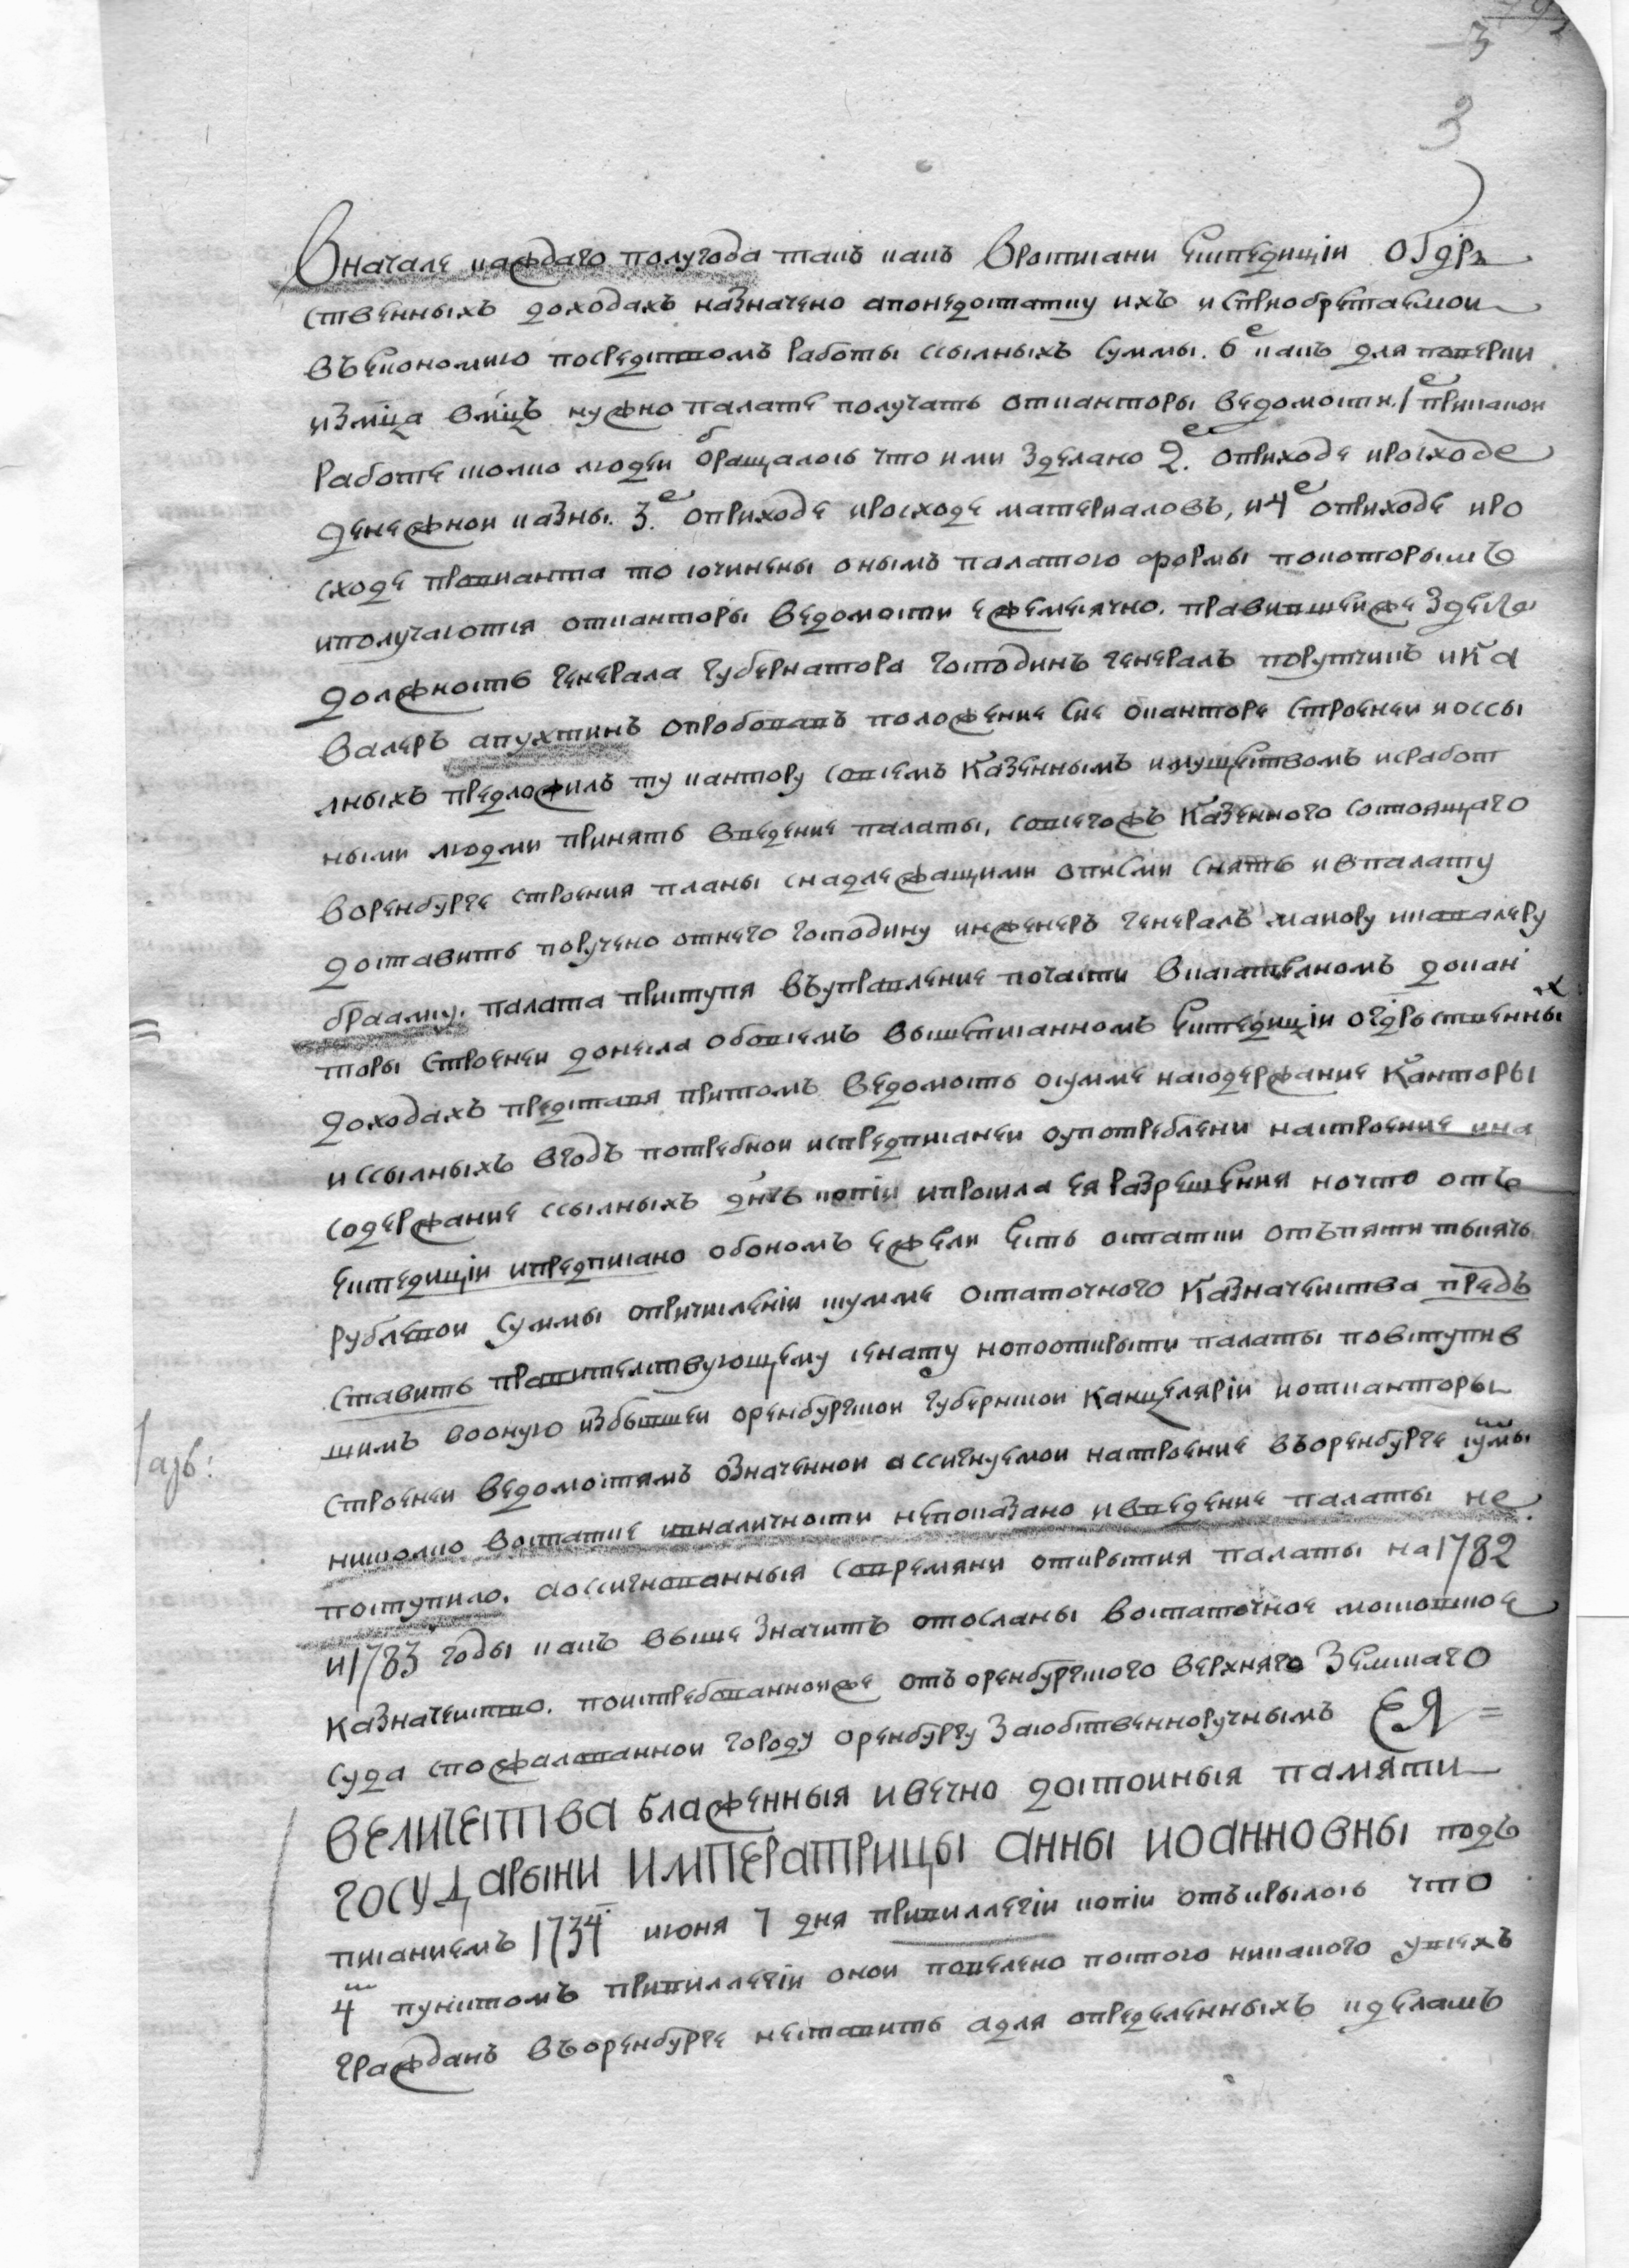 3
3
Вначале каждаго полугода такъ какъ Вросписани Експедиціи огдр
ственныхъ доходахъ назначено апонедостатку ихъ исприобретаемои
въекономию посредствомъ работы ссылныхъ суммы. 6е какъ для поверки
измца вмцъ нужно палате получать отканторы ведомости. 1е прикакои
работе сколко людеи обращалось что ими зделано 2е. оприходе ирасходе
денежнои казны. 3е. оприходе ирасходе материаловъ, и4е оприходе ира
сходе провианта то сочинены онымъ палатою формы покоторымъ
иполучаются отканторы ведомости ежемесячно. правившеиже здесь
должность генерала губернатора господинъ генералъ порутчикъ ика
валеръ апухтинъ опробовавъ положение сие оканторе строенеи иоссы
лныхъ предложилъ ту кантору совсемъ казеннымъ имуществомъ исработ
ными людми принять введение палаты, совсегожъ казенного состоящаго
воренбурге строения планы снадлежащими описми снять ивпалату
доставить поручено отнего господину инженеръ генералъ маиору икавалеру
брадкиу. палата приступя въуправление почасти вкасателномъ докан
торы строенеи донесла обовсемъ вышеписанномъ Експедиціи огдрьственных
доходахъ представя притомъ ведомость осумме насодержание канторы
иссылныхъ вгодъ потребнои испредписанеи оупотреблени настроение ина
содержание ссылныхъ днгъ копіи ипросила ея разрешения ночто отъ
експедиціи ипредписано обономъ ежели есть остатки отъпяти тысячь
рублевои суммы опричислении ксумме остаточного казначеиства предъ
ставить правителствующему сенату нопооткрыти палаты повступив
шимъ вооную избывшеи оренбургскои губернскои канцеляріи иотканторы
строенеи ведомостямъ означеннои ассигнуемои настроение въоренбурге суммы
нисколко востатке ивналичности непоказано ивведение палаты не
поступило. аассигнованныя современи открытия палаты на1782
и1783 годы какъ выше значитъ отосланы востаточное московское
казначеиство. поистребованнойже отъ оренбургского верхняго земскаго
суда спожалованнои городу оренбургу засобственноручнымъ ЕЯ =
ВЕЛИЧЕСТВА блаженныя ивечно достоиныя памяти
ГОСУДАРЫНИ ИМПЕРАТРИЦЫ АННЫ ИОАННОВНЫ подъ
писаниемъ 1734 июня 7 дня привиллегіи копіи открылось что
4м пунктомъ привиллегіи онои повелено постою никакого увсехъ
гражданъ въоренбурге неставить адля определенныхъ кделамъ